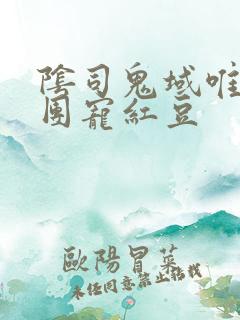 陰司鬼域唯
團寵紅豆
歐陽冒菜
未经同意禁止搭我